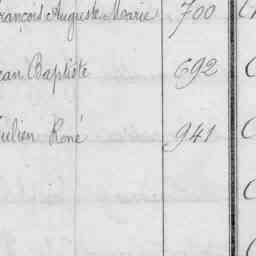 François Auguste Marie 700
Jean Baptiste 692
Julien René 941